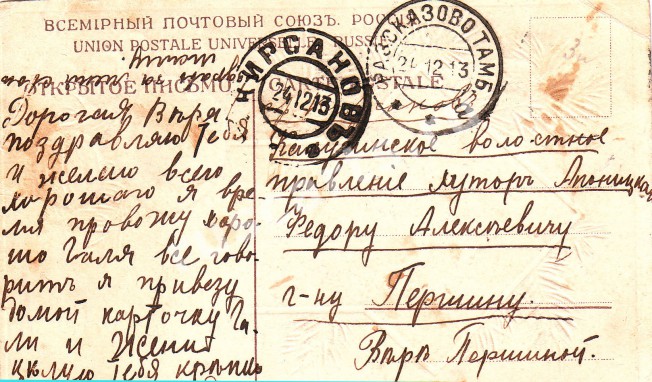 ВСЕМІРНЫЙ ПОЧТОВЫЙ СОЮЗЪ. РОССІЯ
UNION POSTALE UNIVERSELLE. RUSSIE
ОТКРЫТОЕ ПИСЬМО. CARTE POSTALE
КИРСАНОВ
24 12 13
РАЗСКАЗОВО ТАМБ.
24 12 13
за
Дорогая Вѣра
поздравляю тебя
и желаю всего
хорошаго я вре-
мя провожу хоро-
шо Галя все гово-
ритъ я привезу
домой карточку Га-
ли и Жени
цѣлую тебя крѣпко
волостное
правленіе хуторъ
Федору Алексѣевичу
г-ну Першину.
Вѣрѣ Першиной.